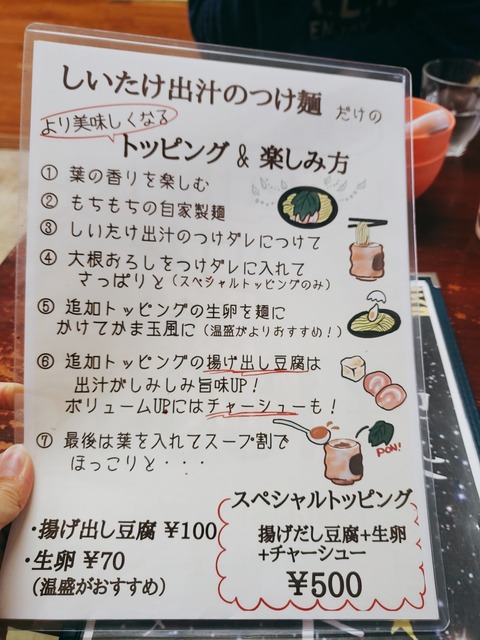 しいたけ出汁のつけ麺 だけの
より美味しくなる
トッピング & 楽しみ方
① 葉の香りを楽しむ
② もちもちの自家製麺
③ しいたけ出汁のつけダレにつけて
④ 大根おろしをつけダレに入れて
さっぱりと(スペシャルトッピングのみ)
⑤ 追加トッピングの生卵を麺に
かけてかま玉風に(温盛がよりおすすめ!)
⑥ 追加トッピングの揚げ出し豆腐は
出汁がしみしみ旨味UP!
ボリュームUPにはチャーシューも!
⑦ 最後は葉を入れてスープ割で
ほっこりと・・・
PON!
・揚げ出し豆腐 ¥100
・生卵 ¥70
(温盛がおすすめ)
スペシャルトッピング
揚げだし豆腐+生卵
+チャーシュー
¥500